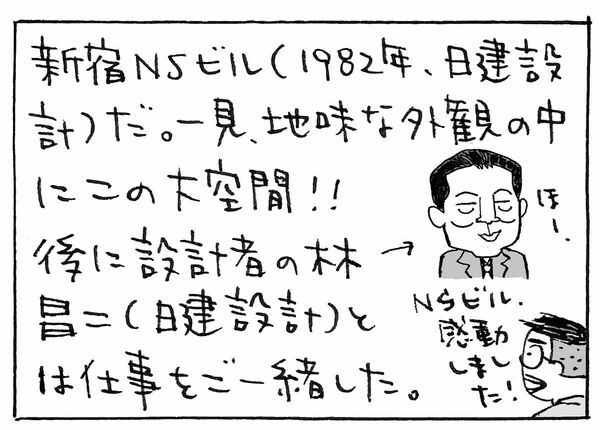 新宿NSビル(1982年、日建設
計)だ。一見、地味な外観の中
にこの大空間!!
後に設計者の林
昌二(日建設計)と
は仕事をご一緒した。
ほー、
NSビル、
感動
しまし
た!